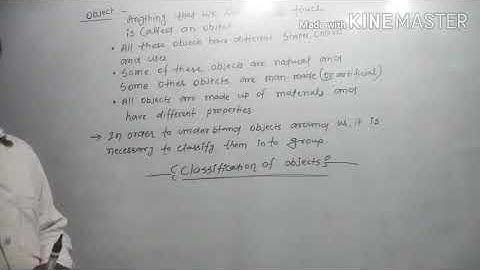 Object - Anything that we touch
Made with KINEMASTER
is called an object
• All these objects have different shapes, colours
and uses
• Some of these objects are natural and
Some other objects are man made (or artificial)
• All objects are made up of materials and
have different properties
→ In order to understand objects around us, it is
necessary to classify them in to group
{Classification of objects}